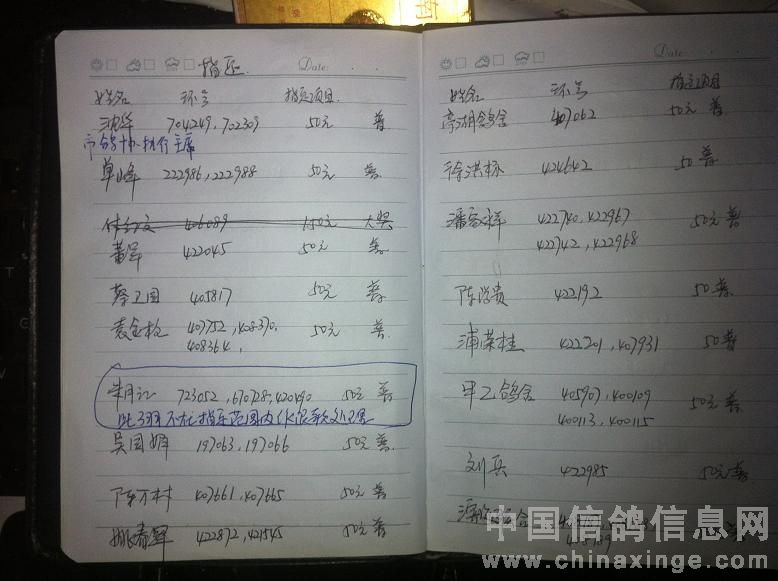 指定
Date:
姓名 环号 指定项目
沈华 704249,702309 50元 普
市鸽协执行主席
单峰 222986,222988 50元 普
406089 150元 大奖
董军 422045 50元 普
蔡卫国 405817 50元 普
袁金松 407752,408370, 50元 普
408364,
朱月江 723052,670728,420490 50元 普
此3羽不在指定范围内
吴国娟 197063,197066 50元 普
陈万村 407661,407665 50元 普
姚春辉 422872,421545 50元 普
Date:
姓名 环号 指定项目
亭湖鸽舍 407062 50元 普
徐洪标 424642 50 普
潘容祥 422740,422967 50元 普
422742,422968
陈学贵 422192 50 普
浦荣桂 422201,407931 50 普
甲乙鸽舍 405907,400109 50元 普
400113,400115
刘兵 422985 50元 普
50元 普
中国信鸽信息网
www.chinaxinge.com